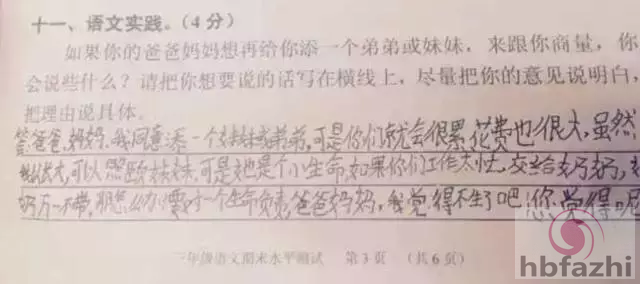 十一、语文实践。(4分)
如果你的爸爸妈妈想再给你添一个弟弟或妹妹，来跟你商量，你
会说些什么？请把你想要说的话写在横线上，尽量把你的意见说明白，
把理由说具体。
答:爸爸,妈妈,我同意添一个妹妹或弟弟,可是你们就会很累,花费也很大,虽然
我长大,可以照顾妹妹,可是她是个小生命,如果你们工作太忙,交给奶奶,
奶万一不带,那怎么办?要对一个生命负责,爸爸妈妈,我觉得不生了吧!您觉得呢
三年级语文期末水平测试 第3页 (共6页)
hbfazhi